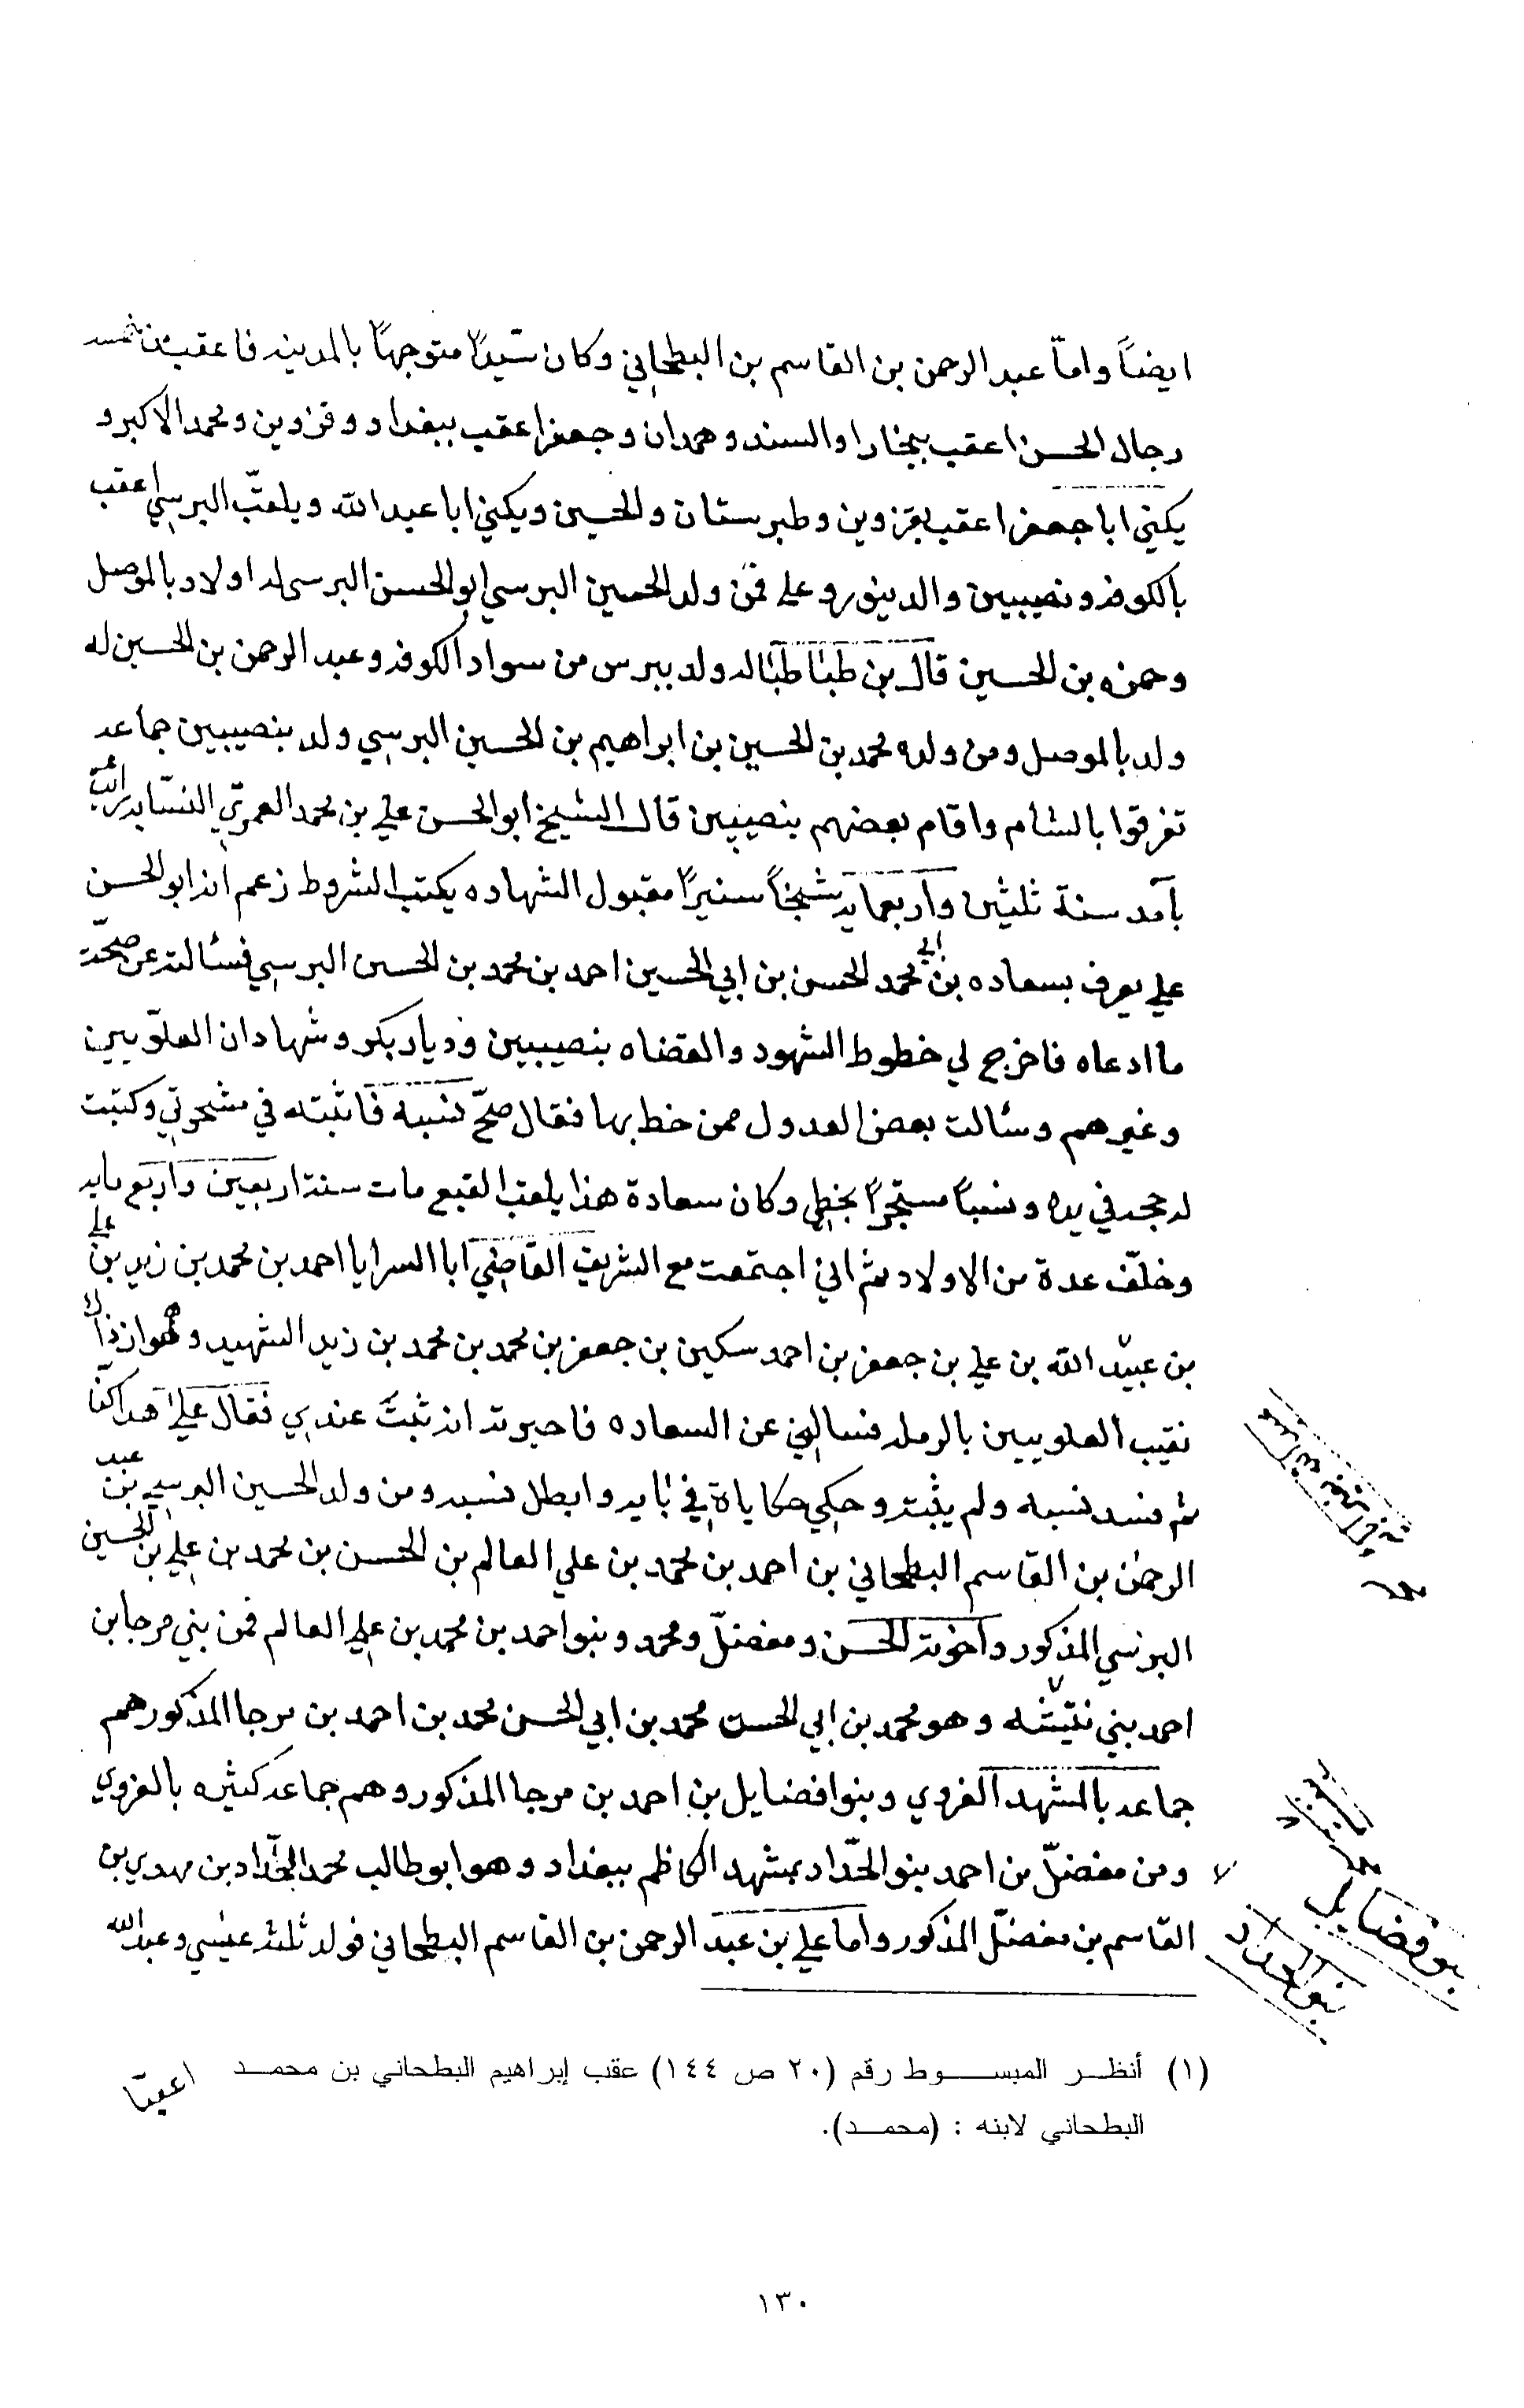 ايضاً واما عبد الرحمن بن القاسم بن البطحاني وكان سيداً متوجهاً بالمدينه فاعقب من خمسه
رجال الحسن اعقب ببخارا والسند وهمدان وجعفر اعقب ببغداد وقزوين ومحمد الاكبر و
يكنى ابا جعفر اعقب بقزوين وطبرستان والحسين ويكنى ابا عبد الله ويلقب البرسي اعقب
بالكوفه ونصيبين والدينور وعلى فمن ولد الحسين البرسي ابو الحسن البرسى له اولاد بالموصل
وحمزه بن الحسين قال بن طباطبا له ولد ببرس من سواد الكوفه وعبد الرحمن بن الحسين له
ولد بالموصل ومن ولده محمد بن الحسين بن ابراهيم بن الحسين البرسي ولد بنصيبين جماعه
تفرقوا بالشام واقام بعضهم بنصيبين قال الشيخ ابو الحسن علي بن محمد العمري النسابه رايت
بآمد سنة ثلثين واربعمايه شيخاً ستيراً مقبول الشهاده يكتب الشروط زعم انه ابو الحسن
علي يعرف بسعاده بن ابي محمد الحسن بن ابي الحسين احمد بن محمد بن الحسين البرسي فسئالته عن صحة
ما ادعاه فاخرج لي خطوط الشهود والقضاه بنصيبين وديار بكر وشهادات العلويين
وغيرهم وسئالت بعض العدول ممن خط بها فقال صح نسبه فاثبته في مشجرتي وكتبت
له حجه في يده ونسباً مشجراً بخطي وكان سعادة هذا يلقب القبع مات سنة اربعين واربع مايه
وخلف عدة من الاولاد ثم اني اجتمعت مع الشريف القاضي ابا السرايا احمد بن محمد بن زيد بن علي
بن عبيد الله بن علي بن جعفر بن احمد سكين بن جعفر بن محمد بن محمد بن زيد الشهيد وهو اذ ذاك
نقيب العلويين بالرمله فسالني عن السعاده فاخبرته انه ثبت عندي فقال على هذا كنا
ثم فسد نسبه ولم يثبت وحكى حكاياة في بابه وابطل نسبه ومن ولد الحسين البرسي بن عبد
الرحمن بن القاسم البطحاني بن احمد بن محمد بن علي العالم بن الحسن بن محمد بن علي بن الحسين
البرسي المذكور واخوته الحسن ومفضل ومحمد وبنو احمد بن محمد بن علي العالم فمن بني مرجا بن
احمد بني وهو محمد بن ابي الحسن محمد بن ابي الحسن محمد بن احمد بن مرجا المذكور هم
جماعه بالمشهد الغروي وبنوا فضايل بن احمد بن مرجا المذكور وهم جماعه كثيره بالغروي
ومن مفضل بن احمد بنو الحداد بمشهد الكاظم ببغداد وهو ابو طالب محمد الحداد بن مهدي بن
القاسم بن مفضل المذكور واما علي بن عبد الرحمن بن القاسم البطحاني فولد ثلثه عيسى وعبد الله
بنو فضايل
بنو الحداد
(١) أنظر المبسوط رقم (٢٠ ص ١٤٤) عقب إبراهيم البطحاني بن محمد
البطحاني لابنه : (محمد).
اعقبا
١٣٠